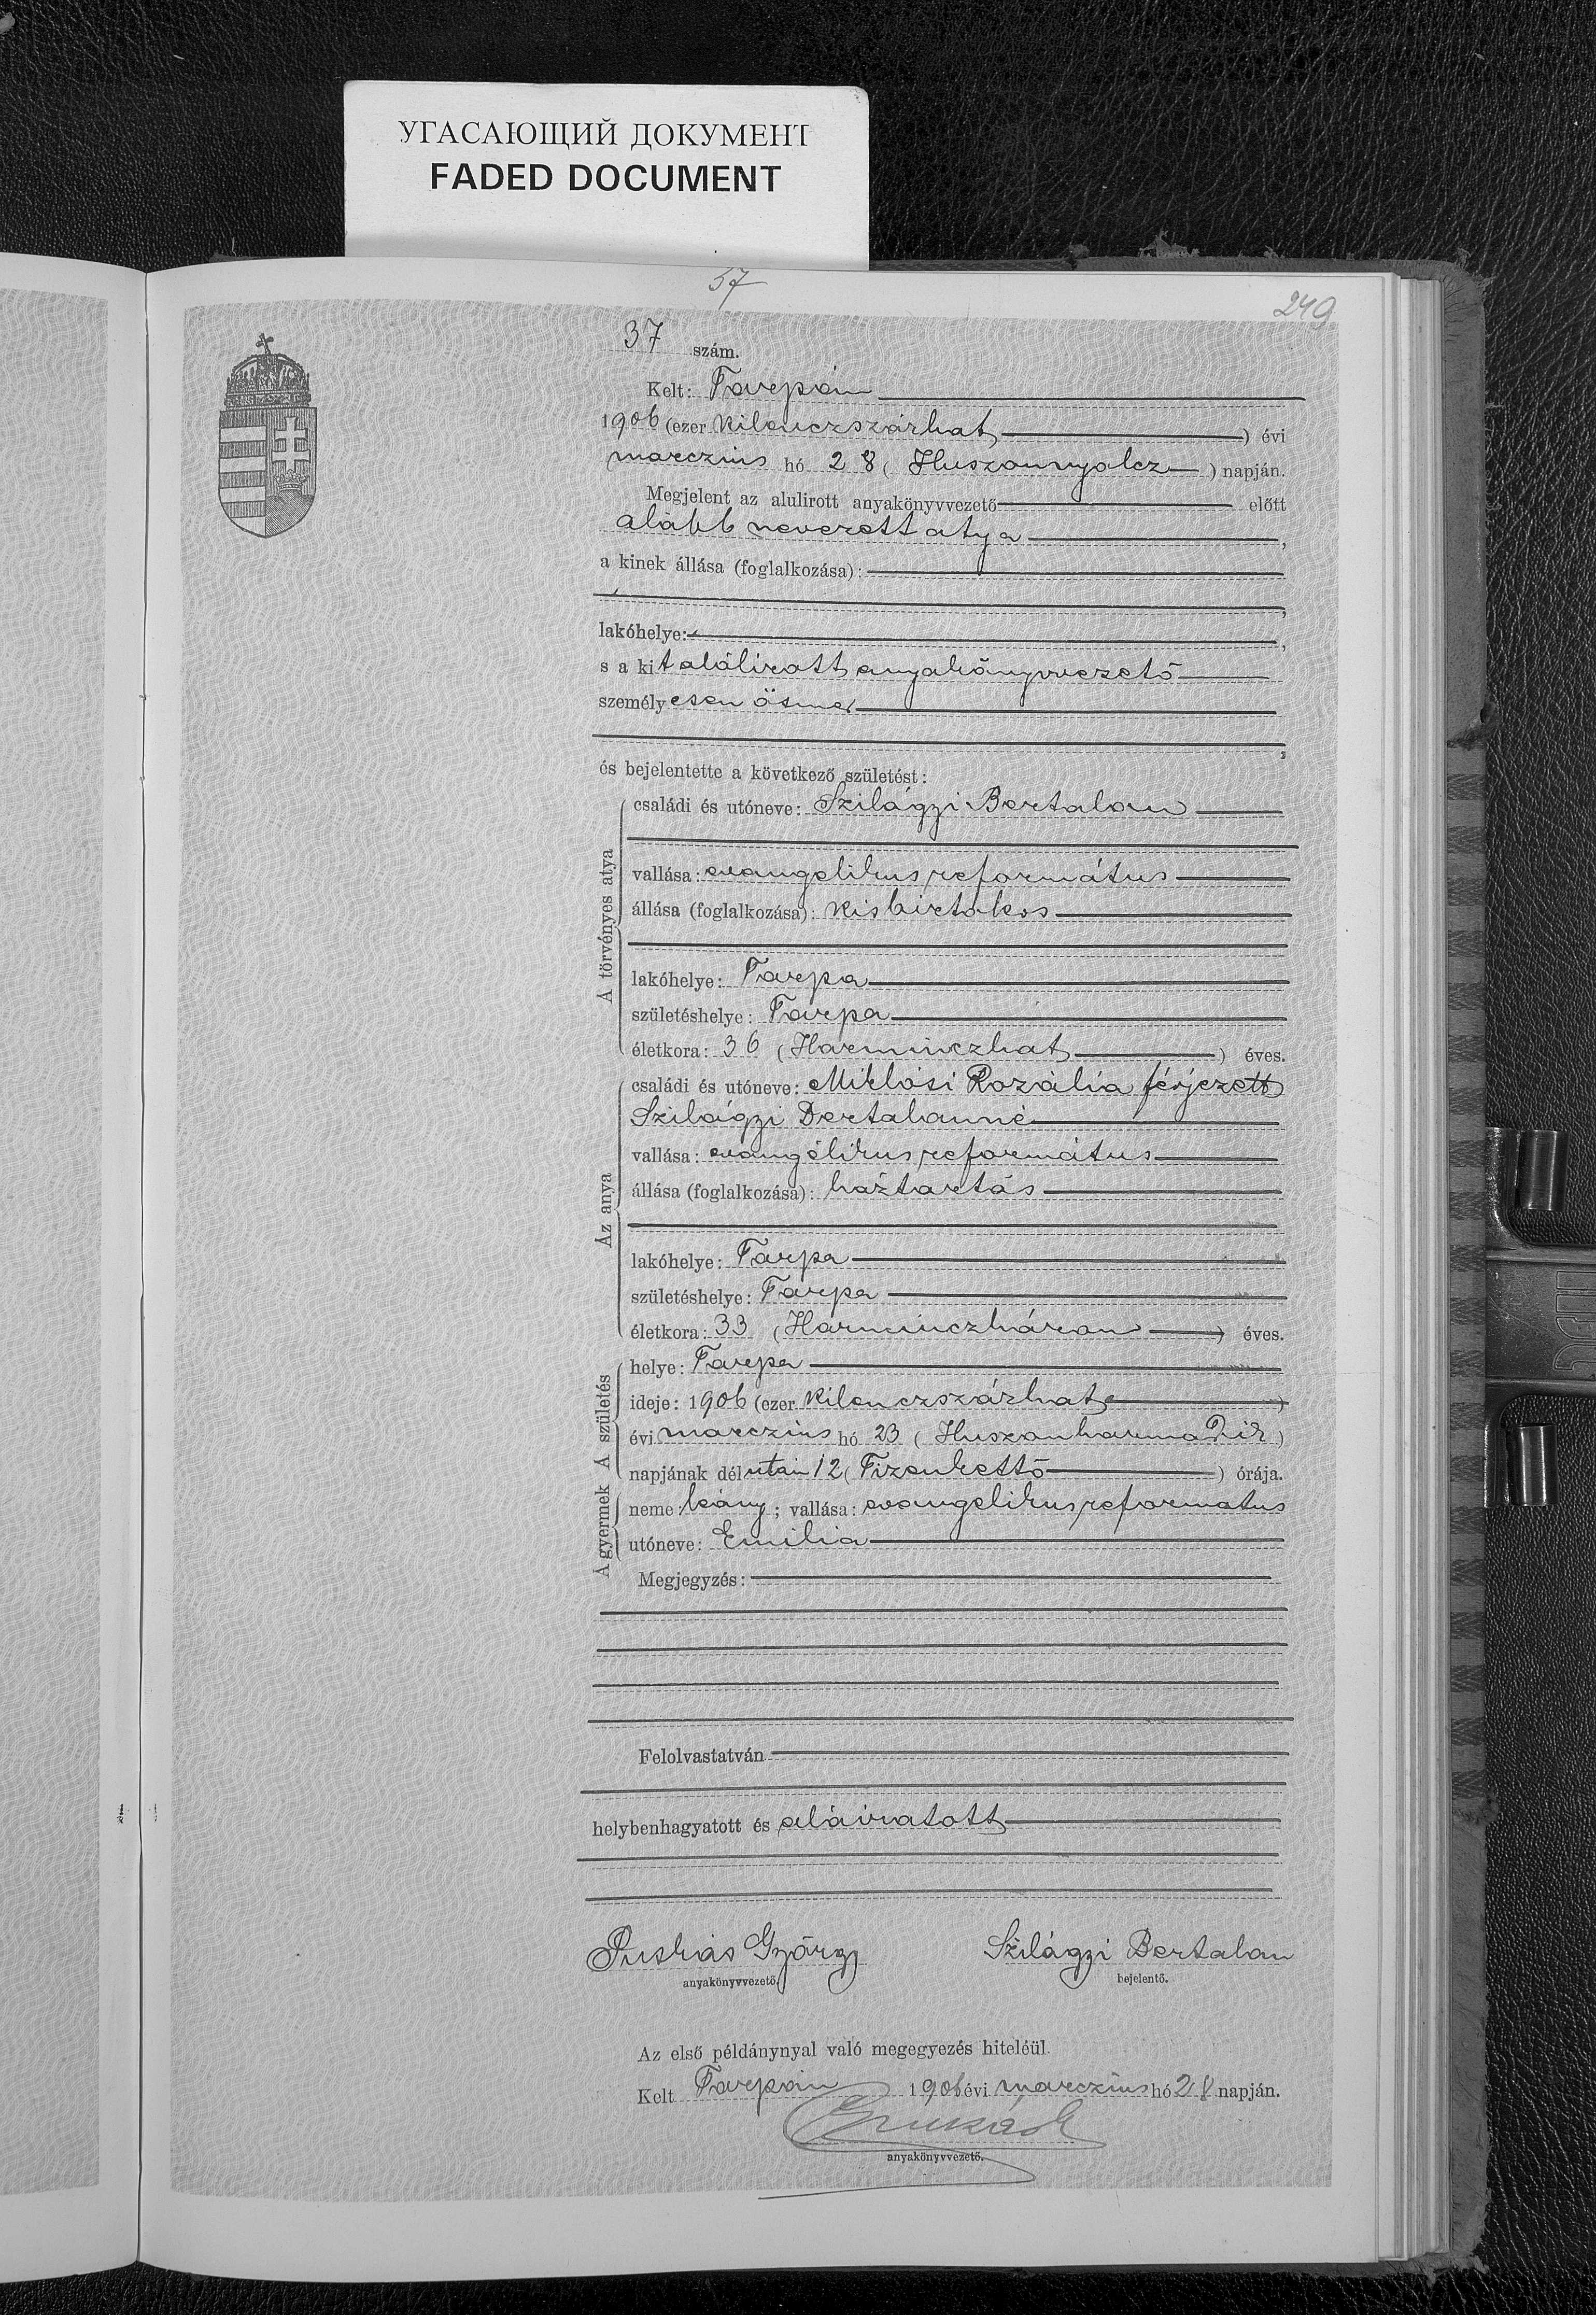 УГАСАЮЩИЙ ДОКУМЕНТ
FADED DOCUMENT
37
249
37 szám.
Kelt: Tarpán
1906 (ezer kilenczszázhat) évi
marczius hó 28 (Huszonnyolcz) napján.
Megjelent az alulirott anyakönyvvezető előtt
alább nevezett atya,
a kinek állása (foglalkozása):
,
lakóhelye: ,
s a kit alólirott anyakönyvvezető
személyesen ösmer
;
és bejelentette a következő születést:
A törvényes atya
családi és utóneve: Szilágyi Bertalan
vallása: evangelikus református
állása (foglalkozása): kisbirtokos
lakóhelye: Tarpa
születéshelye: Tarpa
életkora: 36 (Harminczhat) éves.
Az anya
családi és utóneve: Miklósi Rozália férjezett
Szilágyi Bertalanné
vallása: evangélikus református
állása (foglalkozása): háztartás
lakóhelye: Tarpa
születéshelye: Tarpa
életkora: 33 (Harminczhárom) éves.
A születés
helye: Tarpa
ideje: 1906 (ezer kilenczszázhat)
évi marczius hó 23 (Huszonharmadik)
napjának délután 12 (Tizenkettő) órája.
A gyermek
neme leány; vallása: evangelikus reformatus
utóneve: Emilia
Megjegyzés:
Felolvastatván
helybenhagyatott és aláiratott
Puskás György Szilágyi Bertalan
anyakönyvvezető. bejelentő.
Az első példánynyal való megegyezés hiteléül.
Kelt Tarpán 1906 évi marczius hó 28 napján.
anyakönyvvezető.